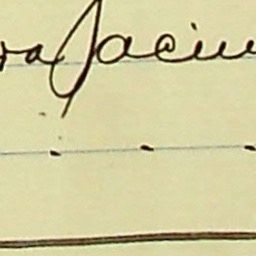 ra Jacin